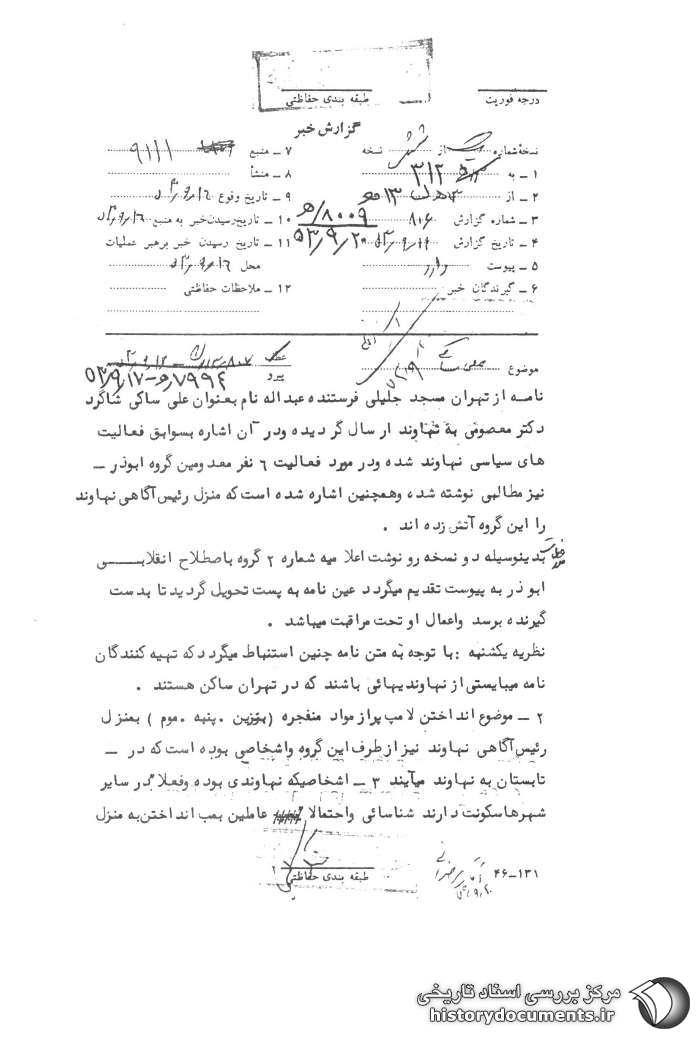 درجه فوریت
طبقه بندی حفاظتی
گزارش خبر
نسخه شماره از شش نسخه
۱ ـ به ۳۱۲
۲ ـ از
۳ ـ شماره گزارش ۸۰۶
۸۰۰۹/ه
۴ ـ تاریخ گزارش
۵۳/۹/۲۰
۵ ـ پیوست دارد
۶ ـ گیرندگان خبر
۷ ـ منبع ۹۱۱۱
۸ ـ منشأ
۹ ـ تاریخ وقوع
۱۰ ـ تاریخ رسیدن خبر به منبع
۱۱ ـ تاریخ رسیدن خبر برهبر عملیات
محل
۱۲ ـ ملاحظات حفاظتی
موضوع
عطف
پیرو ۷۹۹۴/ه-۵۳/۹/۱۷
نامه از تهران مسجد جلیلی فرستنده عبداله نام بعنوان علی ساکی شاگرد
دکتر معصومی به نهاوند ارسال گردیده ودر آن اشاره بسوابق فعالیت
های سیاسی نهاوند شده ودر مورد فعالیت ۶ نفر معدومین گروه ابوذر ـ
نیز مطالبی نوشته شد، وهمچنین اشاره شده است که منزل رئیس آگاهی نهاوند
را این گروه آتش زده اند .
بدینوسیله دو نسخه رو نوشت اعلا میه شماره ۲ گروه باصطلاح انقلابی
ابو ذر به پیوست تقدیم میگردد عین نامه به پست تحویل گردید تا بدست
گیرنده برسد واعمال او تحت مراقبت میباشد .
نظریه یکشنبه : با توجه به متن نامه چنین استنباط میگردد که تهیه کنندگان
نامه میبایستی از نهاوندیهائی باشند که در تهران ساکن هستند .
۲ ـ موضوع انداختن لامپ پراز مواد منفجره ( بنزین . پنبه . موم ) بمنزل
رئیس آگاهی نهاوند نیز از طرف این گروه واشخاصی بوده است که در ـ
تابستان به نهاوند میآیند ۳ ـ اشخاصیکه نهاوندی بوده وفعلا" در سایر
شهرها سکونت دارند شناسائی واحتمالا" عاملین بمب انداختن به منزل
طبقه بندی حفاظتی
۴۶-۱۳۱
مرکز بررسی اسناد تاریخی
historydocuments.ir